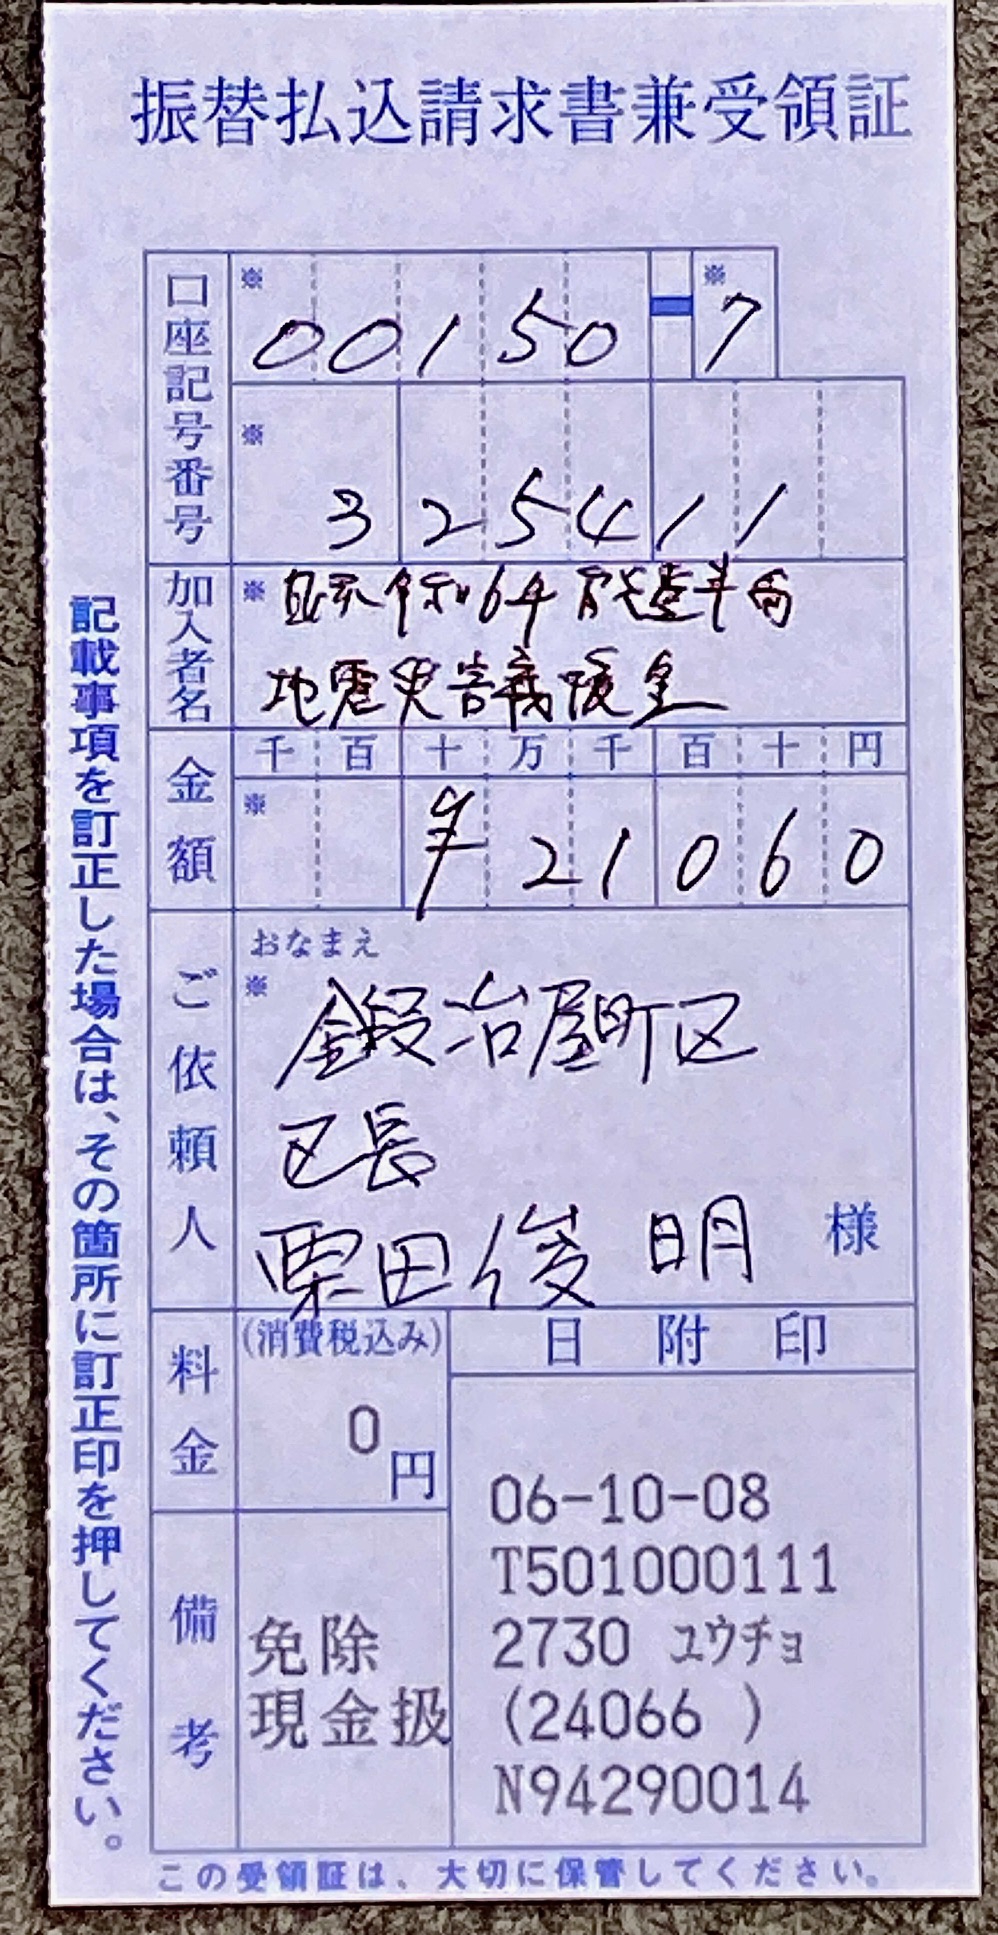 振替払込請求書兼受領証
口座記号番号
※ 00150-7
※ 325411
加入者名
※ 日赤令和6年能登半島
地震災害義援金
金額
千 百 十 万 千 百 十 円
※ ¥21060
ご依頼人
おなまえ
※ 鍛冶屋町区
区長
栗田俊明 様
料金
(消費税込み)
0円
日附印
06-10-08
T501000111
2730 ユウチョ
(24066 )
N94290014
備考
免除
現金扱
記載事項を訂正した場合は、その箇所に訂正印を押してください。
この受領証は、大切に保管してください。